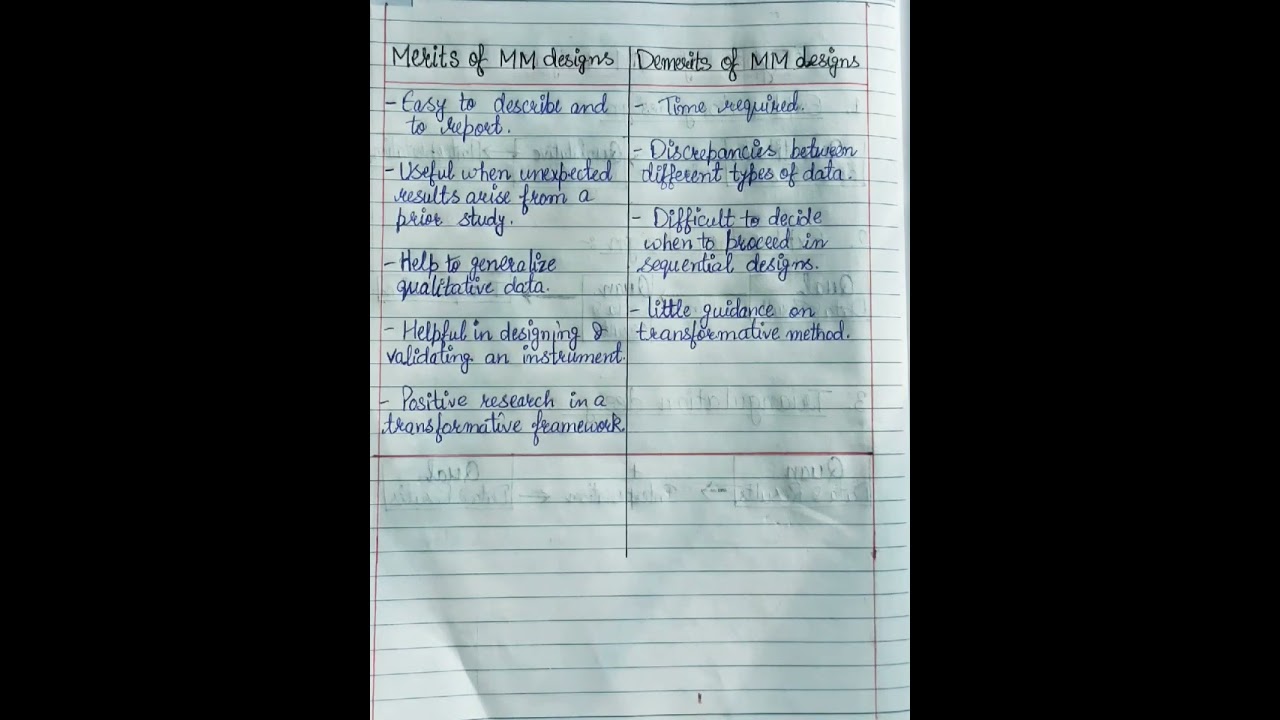 Merits of MM designs
- Easy to describe and
to report.
- Useful when unexpected
results arise from a
prior study.
- Help to generalize
qualitative data.
- Helpful in designing &
validating an instrument.
- Positive research in a
transformative framework.
Demerits of MM designs
- Time required.
- Discrepancies between
different types of data.
- Difficult to decide
when to proceed in
sequential designs.
- little guidance on
transformative method.